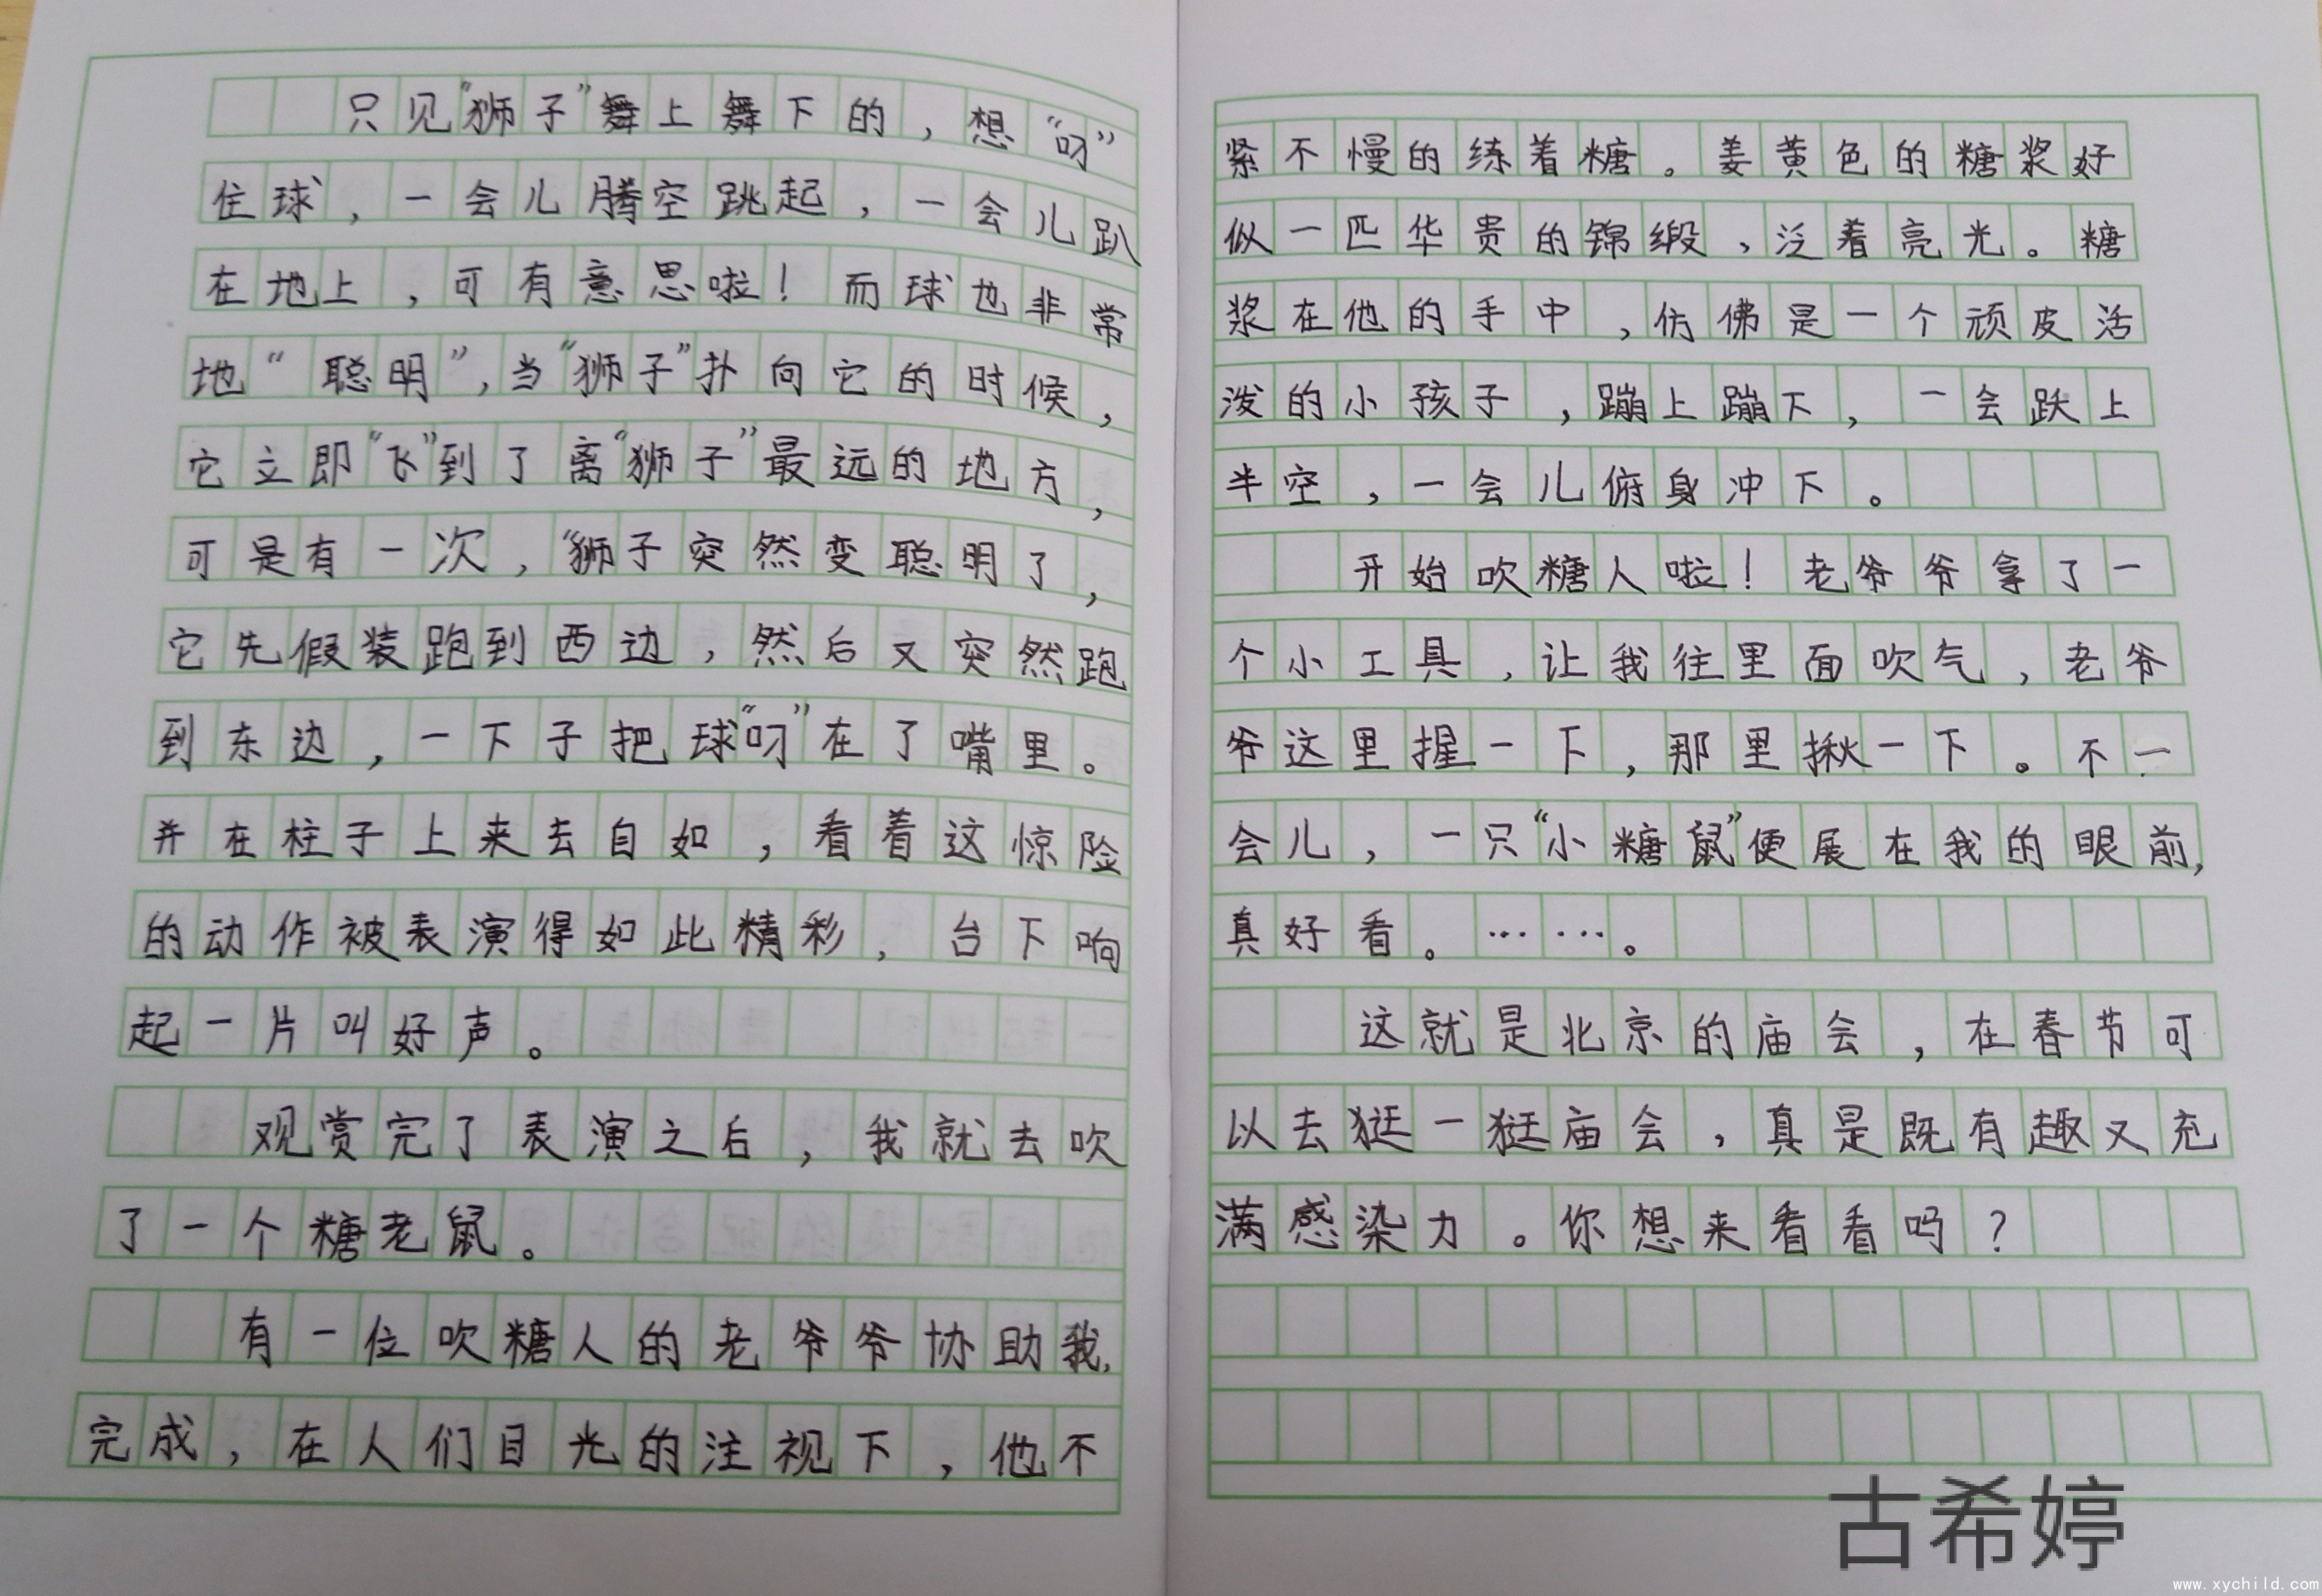 只见“狮子”舞上舞下的，想“叼”
住球，一会儿腾空跳起，一会儿趴
在地上，可有意思啦！而球也非常
地“聪明”，当“狮子”扑向它的时候，
它立即“飞”到了离“狮子”最远的地方，
可是有一次，“狮子突然变聪明了，
它先假装跑到西边，然后又突然跑
到东边，一下子把球“叼”在了嘴里。
并在柱子上来去自如，看着这惊险
的动作被表演得如此精彩，台下响
起一片叫好声。
观赏完了表演之后，我就去吹
了一个糖老鼠。
有一位吹糖人的老爷爷协助我，
完成，在人们目光的注视下，他不
紧不慢的练着糖。姜黄色的糖浆好
似一匹华贵的锦缎，泛着亮光。糖
浆在他的手中，仿佛是一个顽皮活
泼的小孩子，蹦上蹦下，一会跃上
半空，一会儿俯身冲下。
开始吹糖人啦！老爷爷拿了一
个小工具，让我往里面吹气，老爷
爷这里握一下，那里揪一下。不一
会儿，一只“小糖鼠”便展在我的眼前，
真好看。……。
这就是北京的庙会，在春节可
以去逛一逛庙会，真是既有趣又充
满感染力。你想来看看吗？
古希婷
www.xychild.com